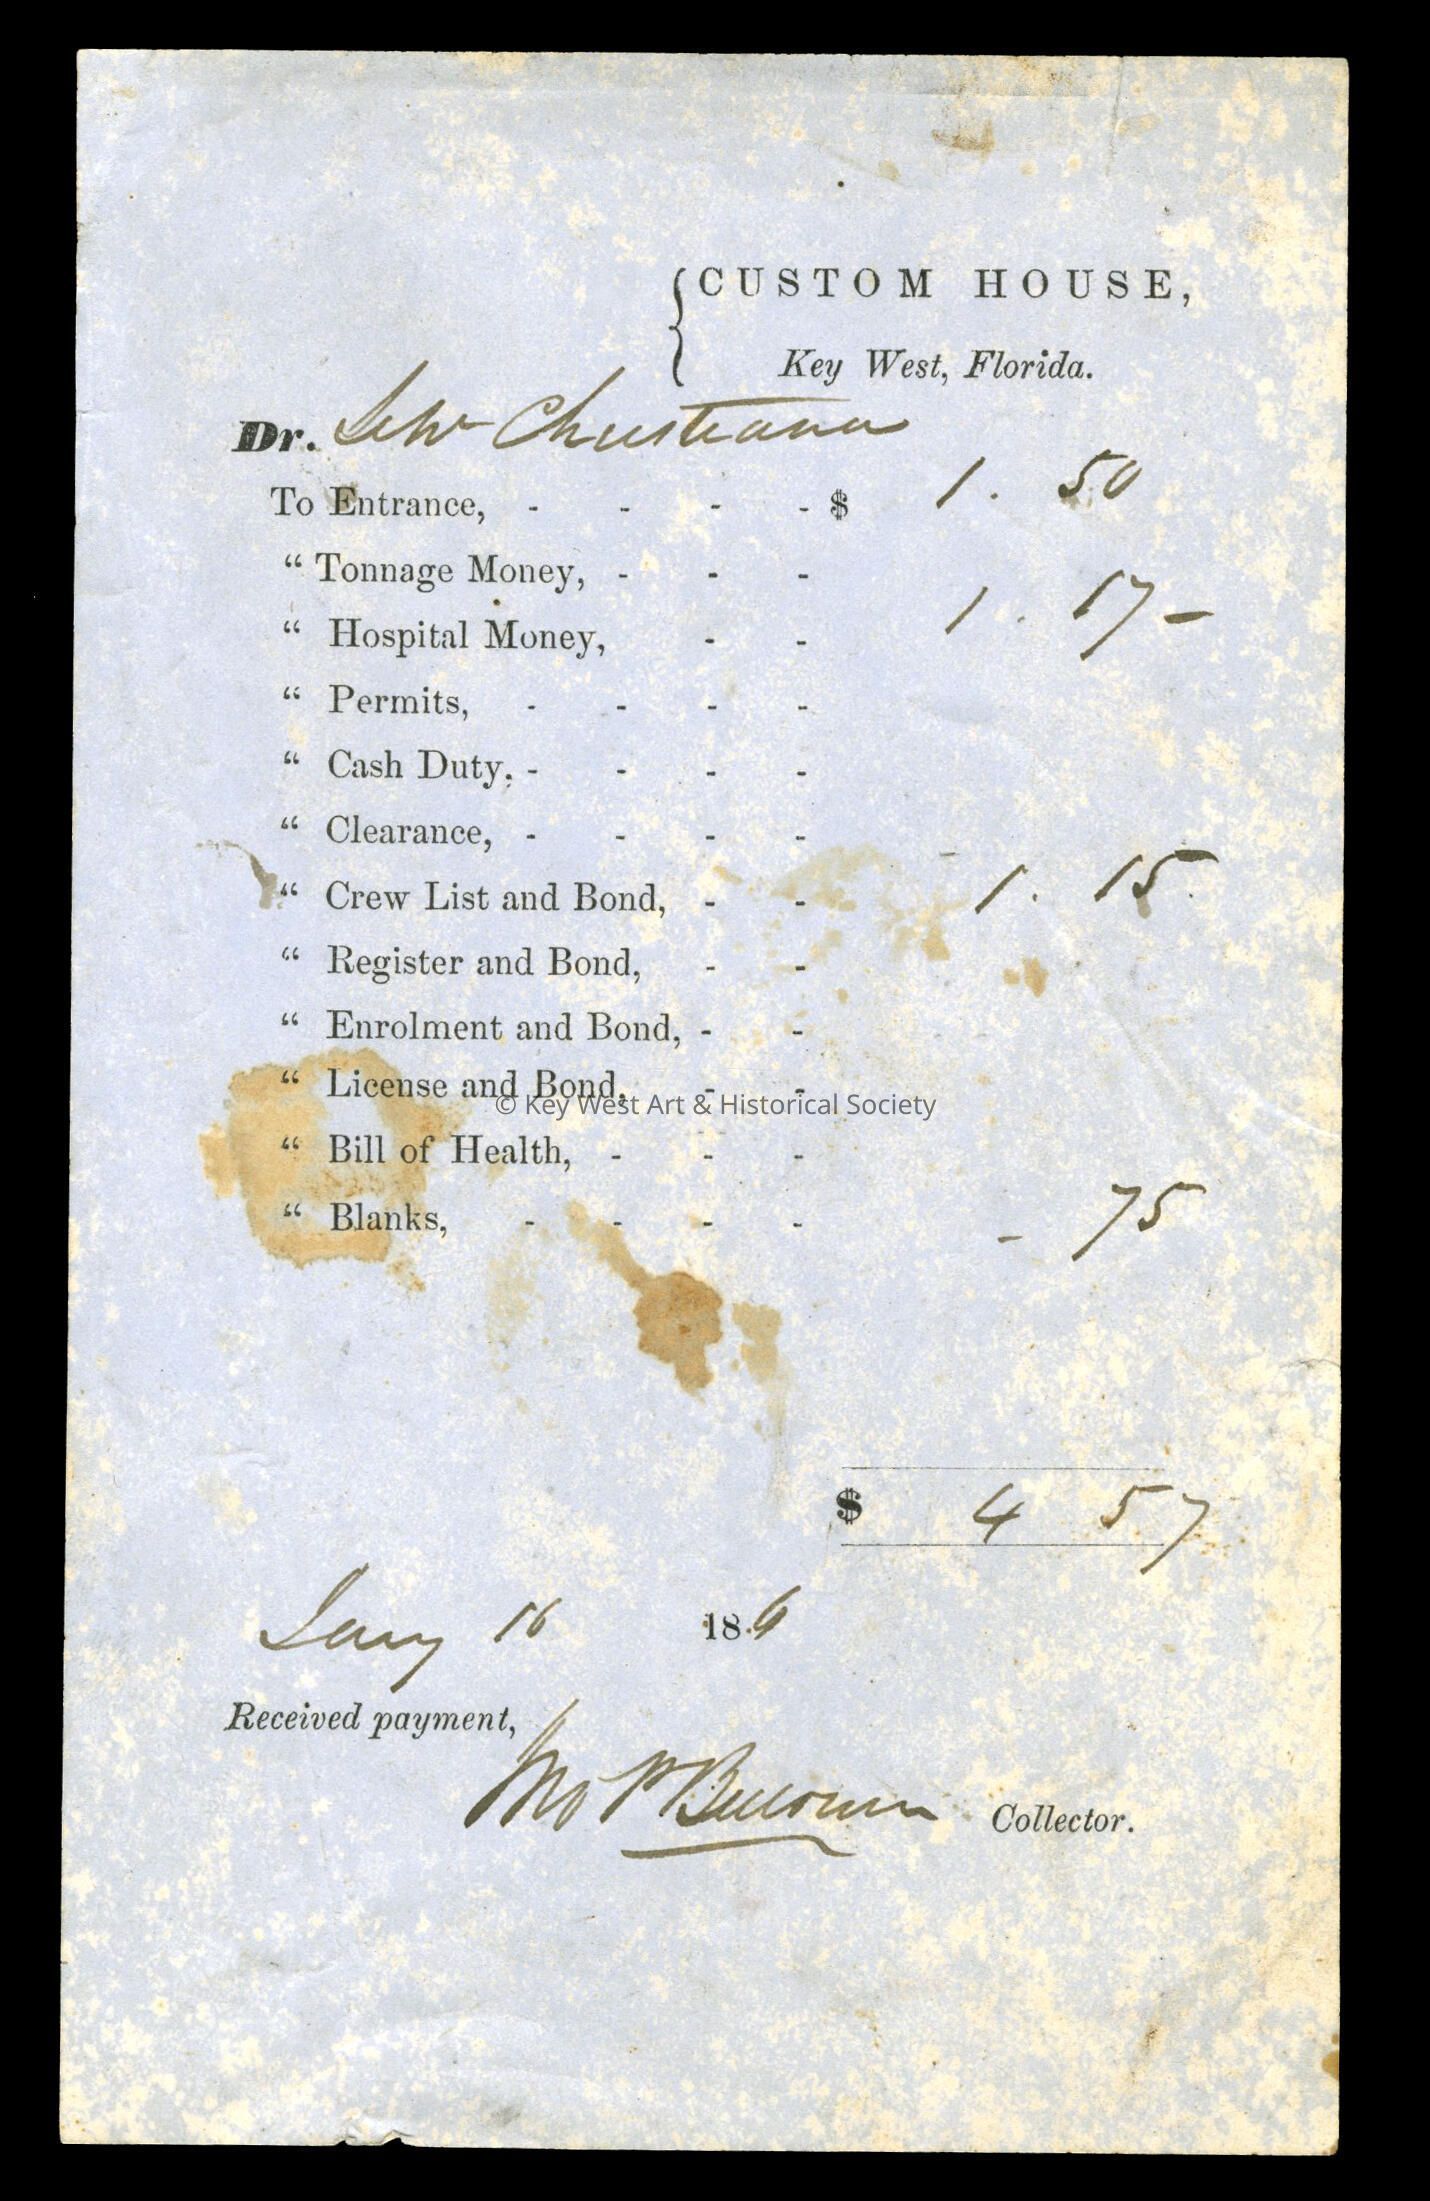 CUSTOM HOUSE,
Key West, Florida.
Dr. Schr Christiana
To Entrance, - - - - $ 1. 50
“ Tonnage Money, - - -
“ Hospital Money, - - 1. 17-
“ Permits, - - - -
“ Cash Duty. - - - -
“ Clearance, - - - -
“ Crew List and Bond, - - 1. 15.
“ Register and Bond, - -
“ Enrolment and Bond, - -
“ License and Bond, - -
© Key West Art & Historical Society
“ Bill of Health, - - -
“ Blanks, - - - - - 75
$ 4 57
Jany 16 18 6
Received payment,
Jno P Baldwin Collector.